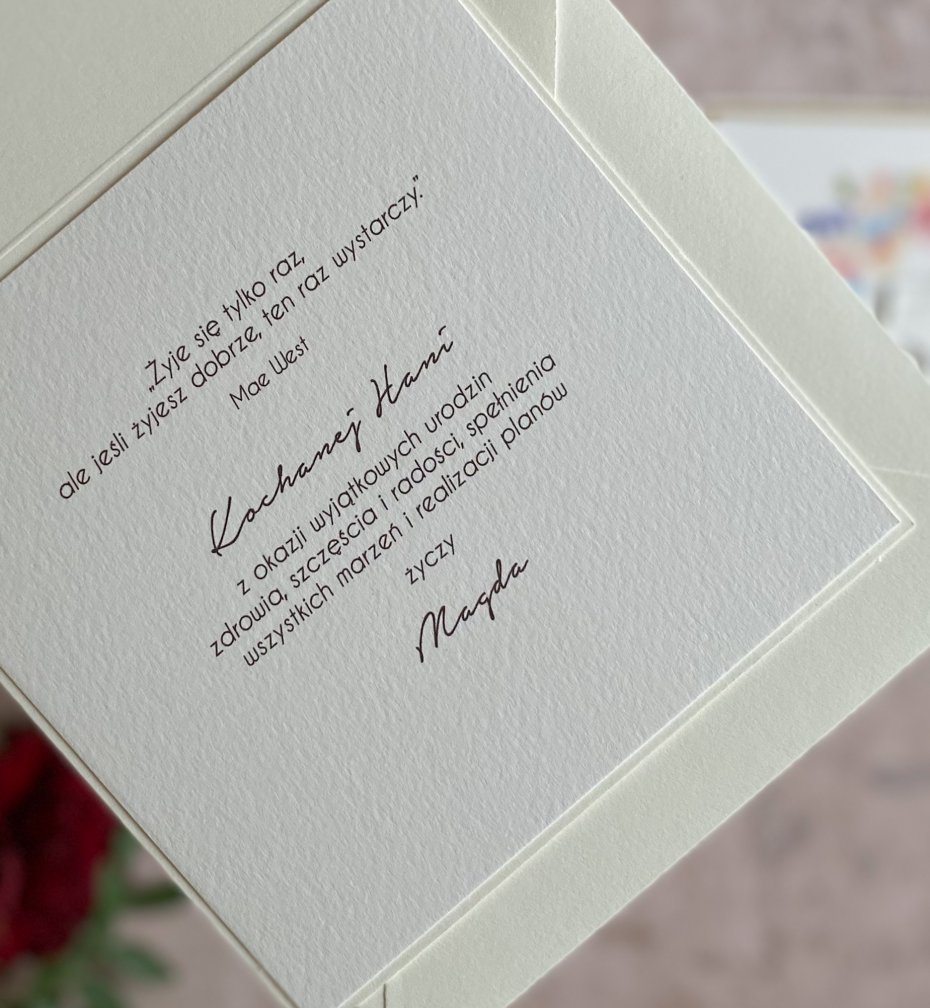 „Żyje się tylko raz,
ale jeśli żyjesz dobrze, ten raz wystarczy.”
Mae West
Kochanej Hani
z okazji wyjątkowych urodzin
zdrowia, szczęścia i radości, spełnienia
wszystkich marzeń i realizacji planów
życzy
Magda